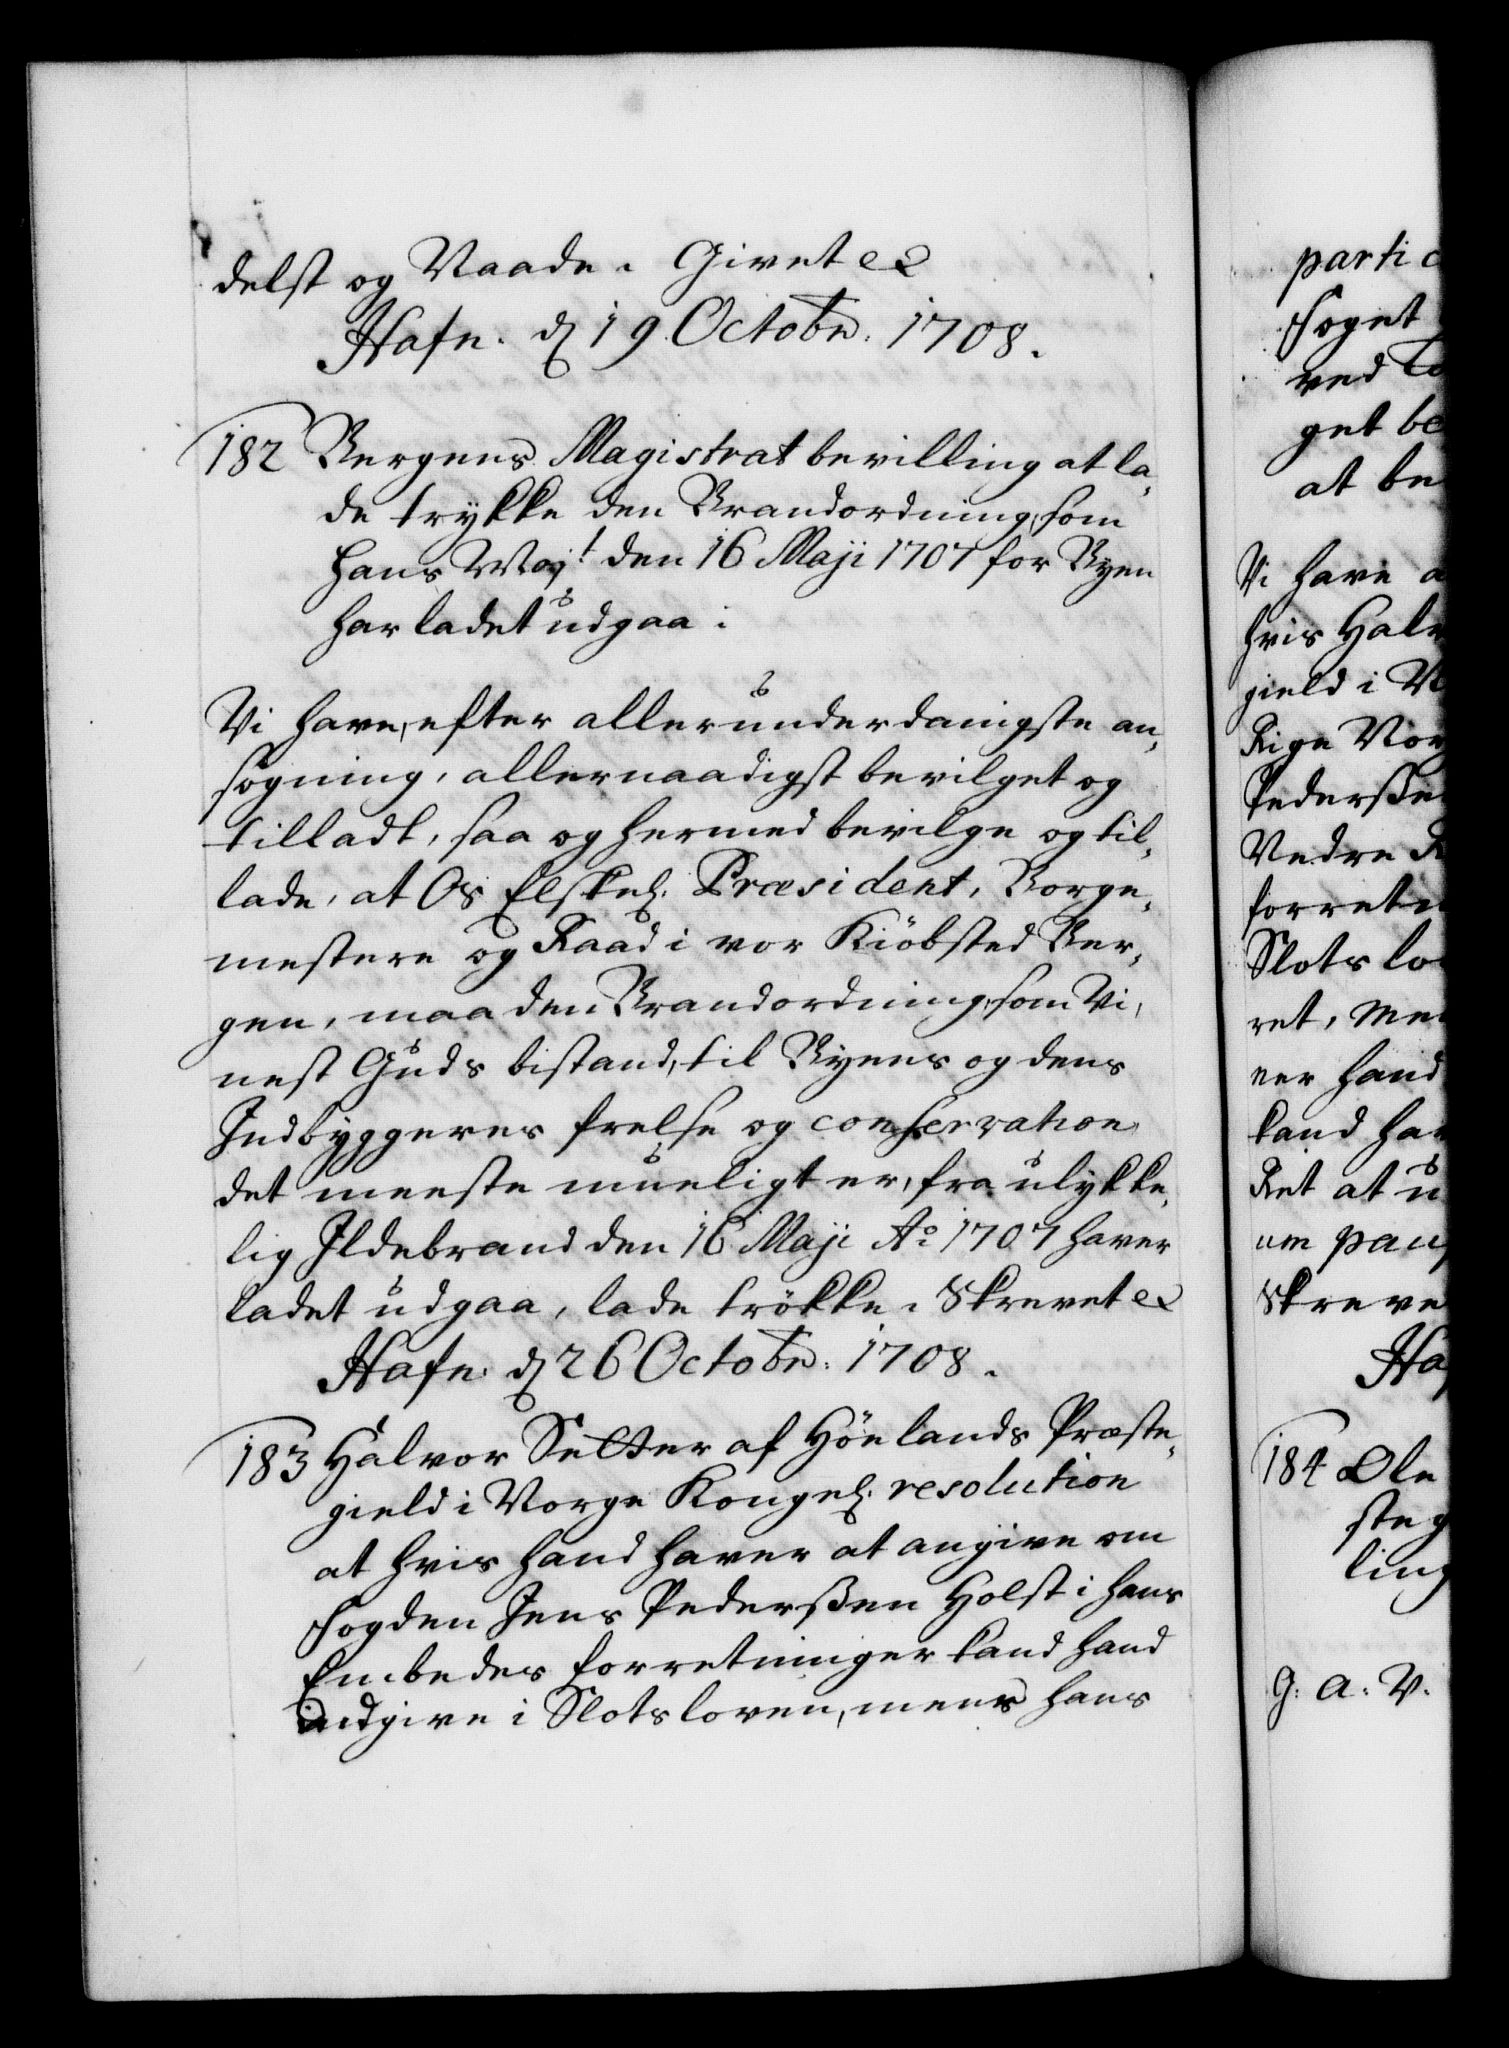 delst og Vaade. Givet etc
Hafn. d 19 Octobr: 1708.
182 Bergens Magistrat bevilling at la,
de trykke den Brandordning, som
Hans May.t den 16 Maji 1707 for Byen
har ladet udgaa:
Vi have, efter allerunderdanigste an,
søgning, allernaadigst bevilget og
tilladt, saa og hermed bevilge og til,
lade, at Os Elskel. Præsident, Borge,
mestere og Raad i vor Kiöbsted Ber,
gen, maa den Brandordning, som Vi,
nest Guds bistand, til Byens og dens
Indbyggeres frelse og conservation
det meeste mueligt er, fra ulykke,
lig Ildebrand den 16 Maji Ao 1707 haver
ladet udgaa, lade trökke. Skrevet etc
Hafn: d 26 Octobr: 1708.
183 Halvor Setter af Höelands Præste,
gield i Norge Kongel. resolution
at hvis hand haver at angive om
Fogden Jens Pederßen Holst i hans
Embedes forretninger kand hand
indgive i Slotsloven, mens hans
partic
Foget
ved To
get be
at be
Vi have a
hvis Halv
gield i N
Rige Nor
Pederße
Vedre
forretn
Slotslo
ret, Me
ner hand
kand ha
Ret at u
um pau
Skreve
Haf
184 Ole
steg
ling
G: A: V.